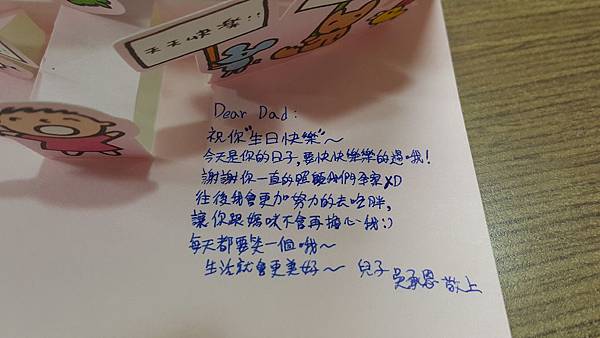 天天快樂!!
Dear Dad:
祝你"生日快樂"~
今天是你的日子,要快快樂樂的過哦!
謝謝你一直的照顧我們全家XD
往後我會更加努力的去吃胖,
讓你跟媽咪不會再擔心我:)
每天都要笑一個哦~
生活就會更美好~ 兒子 吳承恩 敬上